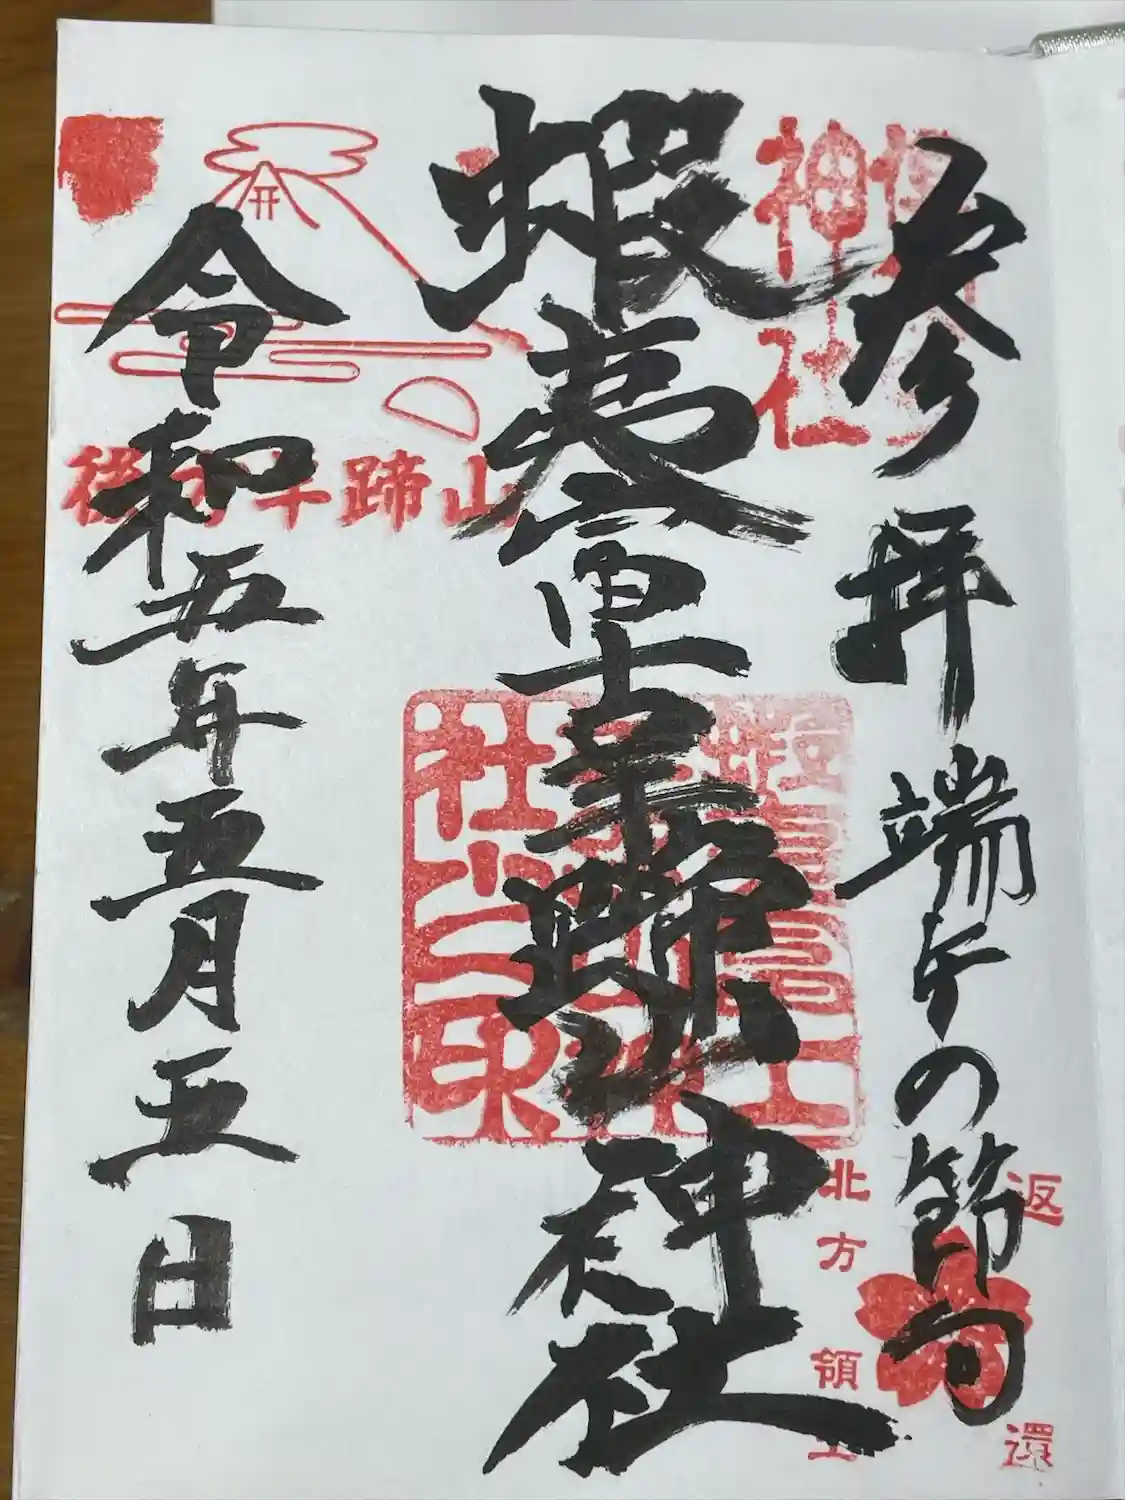 参拝 端午の節句
神社
蝦夷富士羊蹄山神社
北方領土
返還
後方羊蹄山
令和五年五月五日